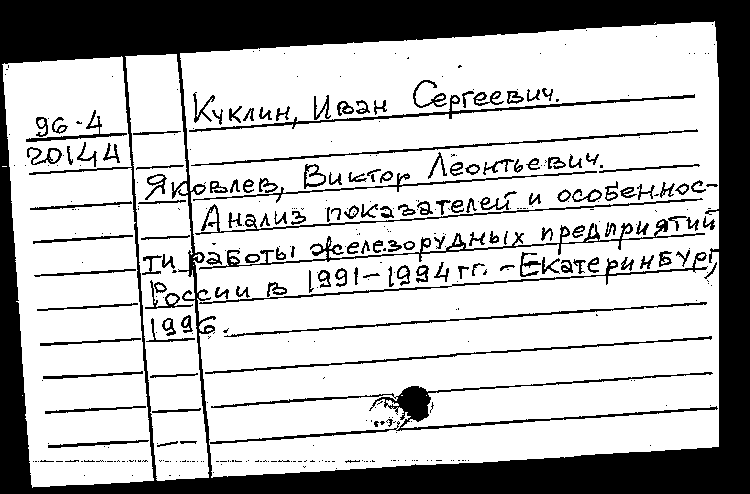 Куклин, Иван Сергеевич.
96-4
20144
Яковлев, Виктор Леонтьевич.
Анализ показателей и особеннос-
ти работы железорудных предприятий
России в 1991-1994 гг. - Екатеринбург,
1996.